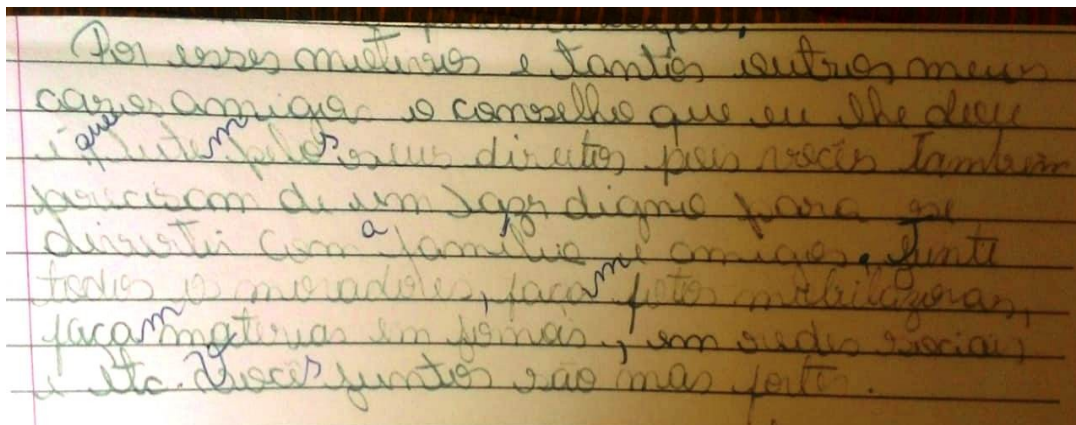 Por esses motivos e tantos outros meus
caros amigos o conselho que eu lhe dou
é que lutem pelos seus direitos pois vocês também
precisam de um lazer digno para se
divertir com a família e amigos. Junte
todos os moradores, façam fotos mobilizoras,
façam materias em jornais, em redes sociais
e etc. Vocês juntos são mas forte.